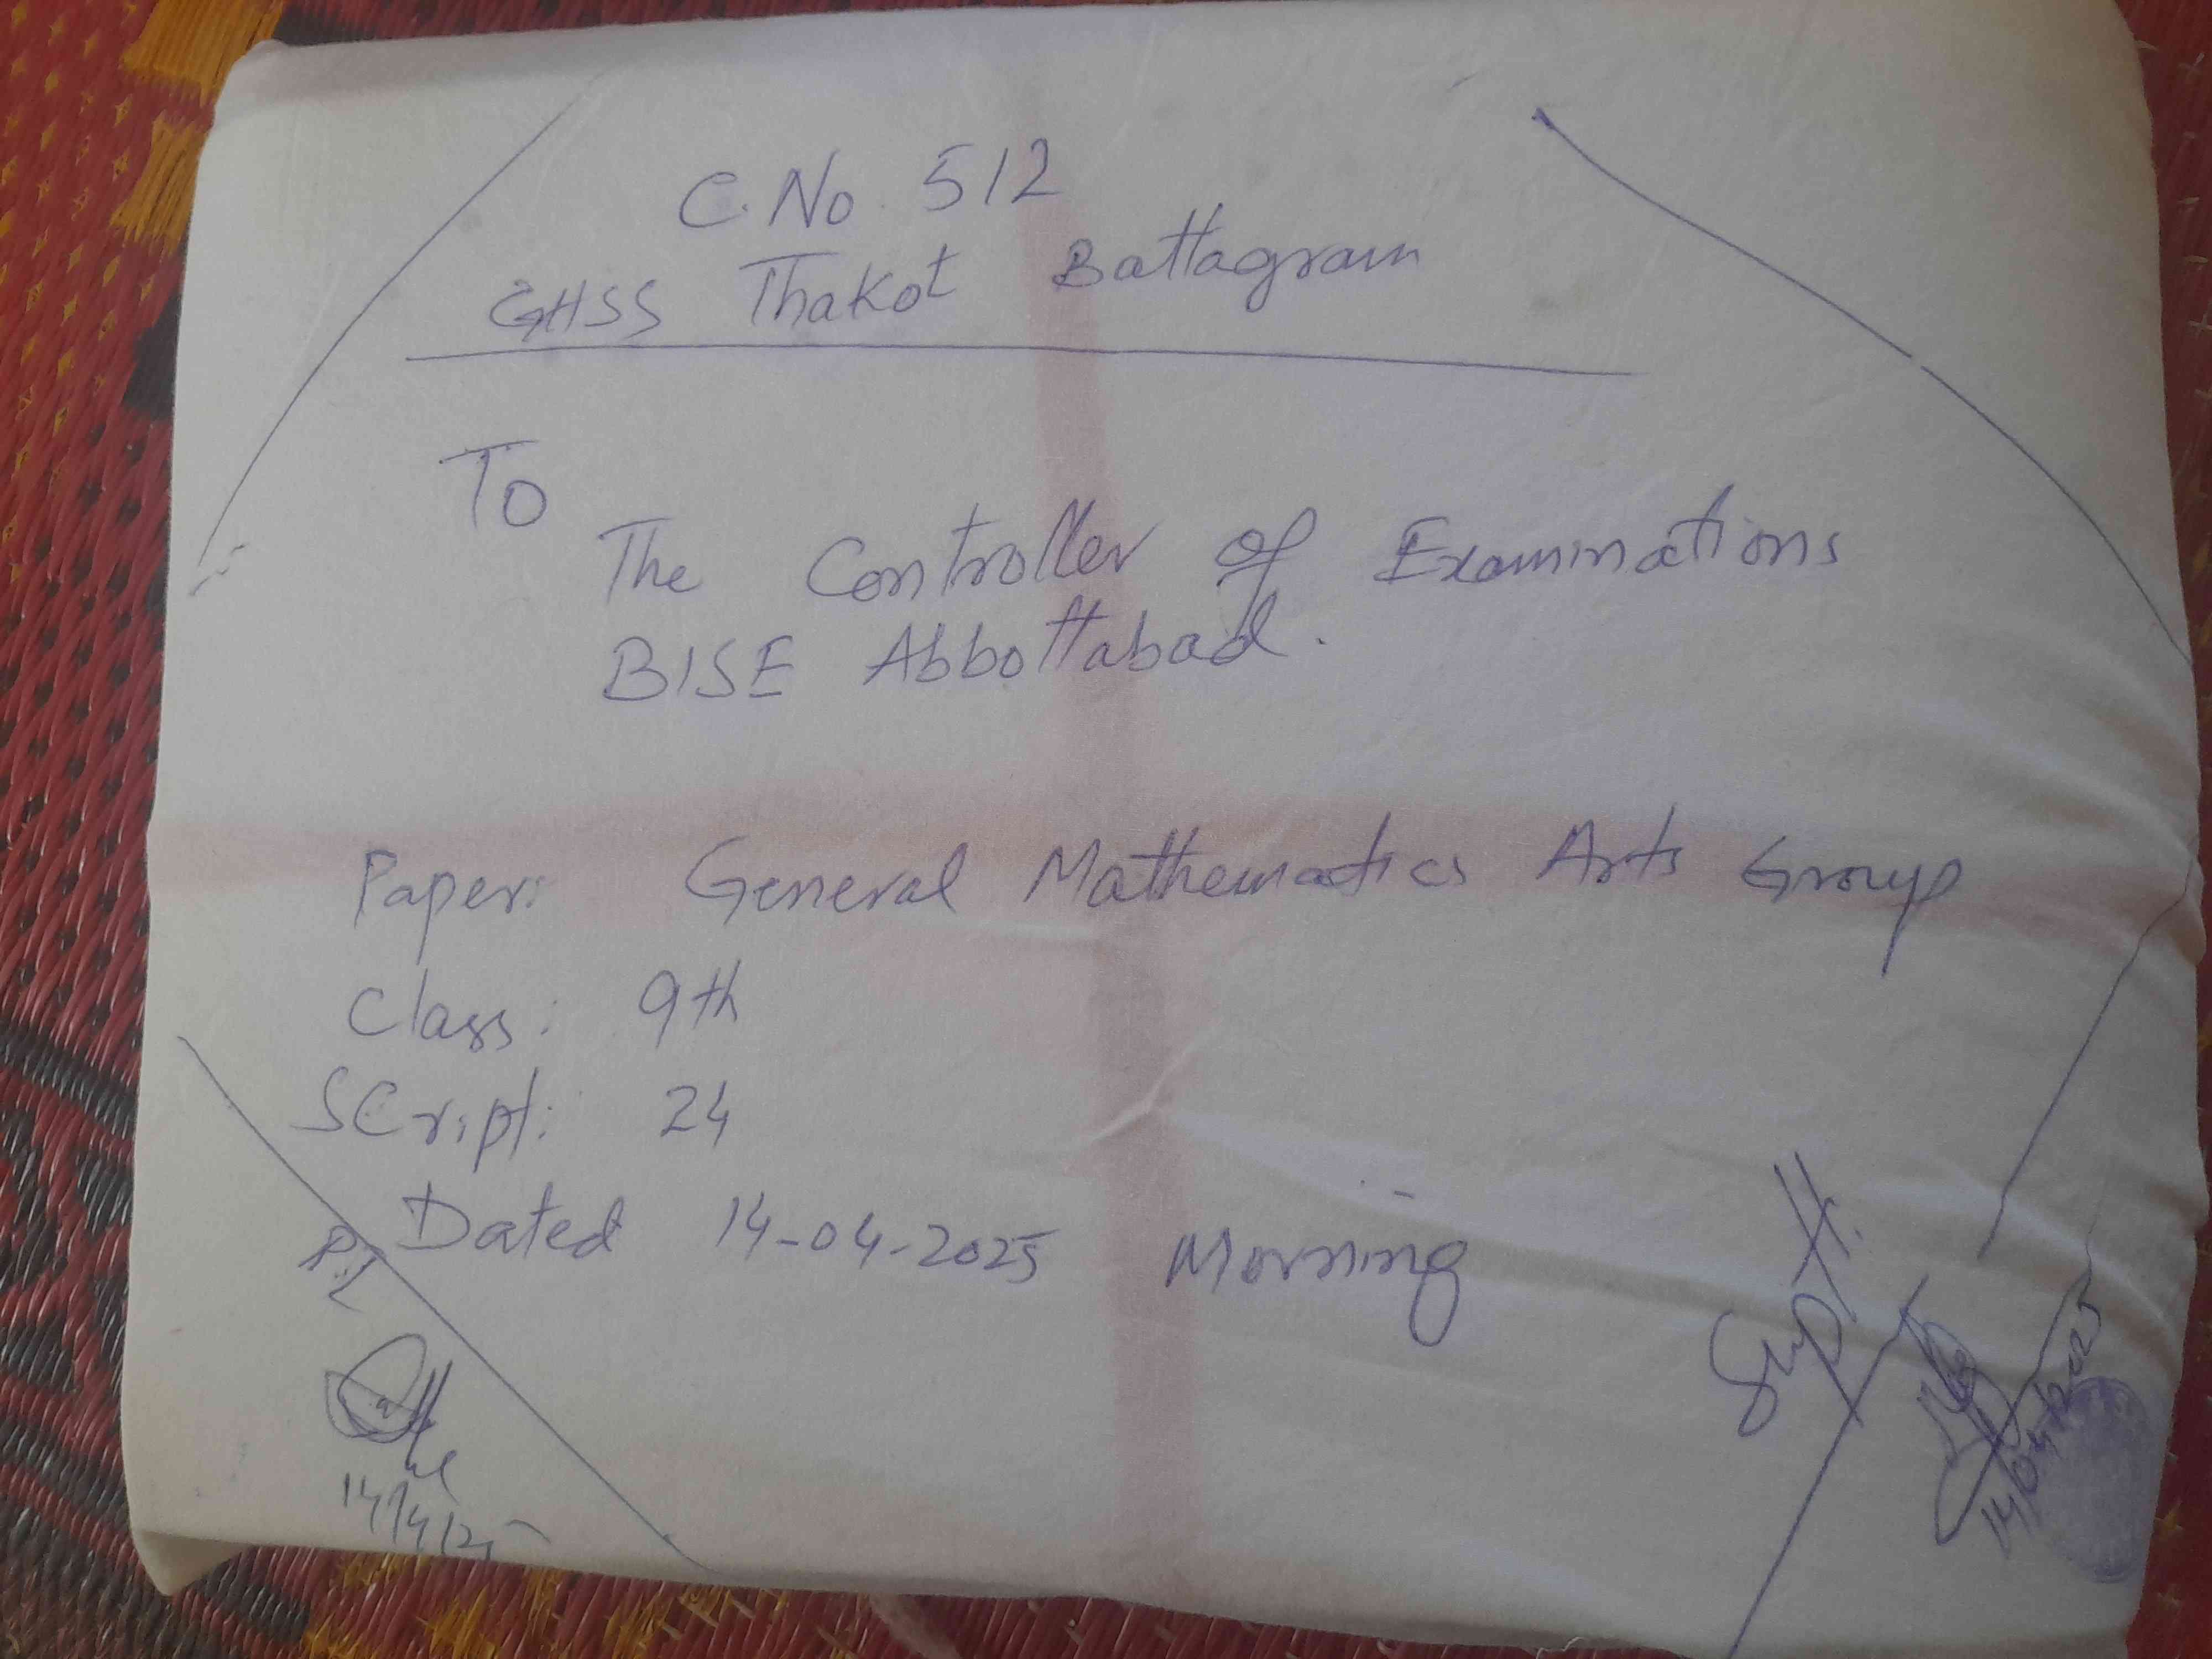 C.No. 512
GHSS Thakot Battagram
To
The Controller of Examinations
BISE Abbottabad.
Paper: General Mathematics Arts Group
Class: 9th
SCript: 24
Dated 14-04-2025 Morning
R.I
14/4/25
Supdtt.
14/04/2025